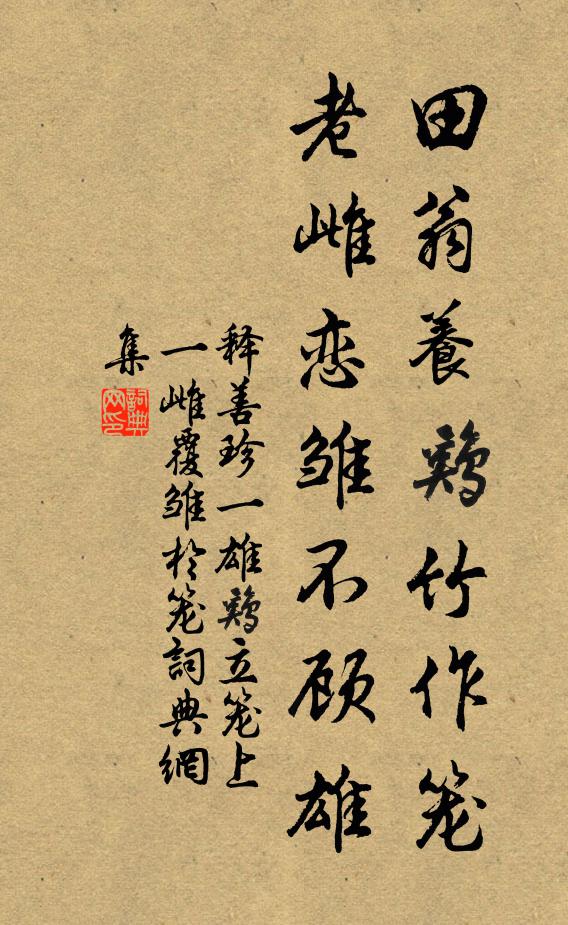 田翁養鷄竹作笼
老雌恋雏不顾雄
释善珍一雄鷄立笼上
一雌覆雏於笼詞典網
集
詞典
网印